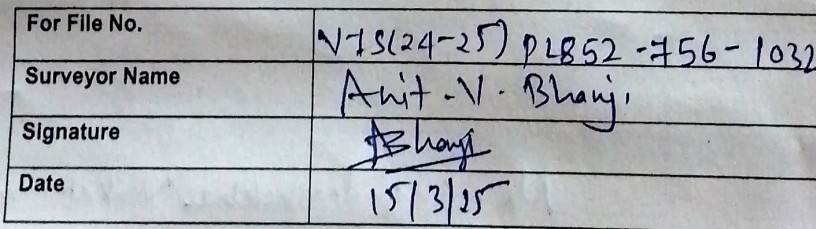 For File No. VIS(24-25) PL852-756-1032
Surveyor Name Anit-V-Bhanji
Signature ABhanji
Date 15/3/25